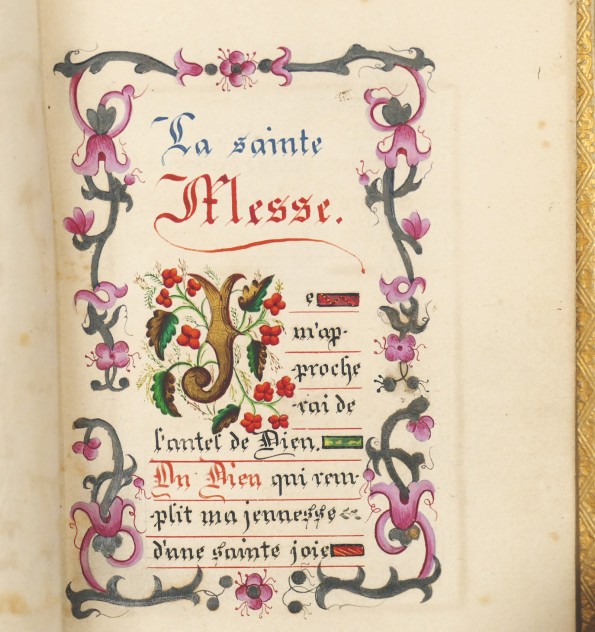 La sainte
Messe.
Je
m'ap-
proche
-rai de
l'autel de Dieu.
Du Dieu qui rem-
plit ma jeunesse
d'une sainte joie